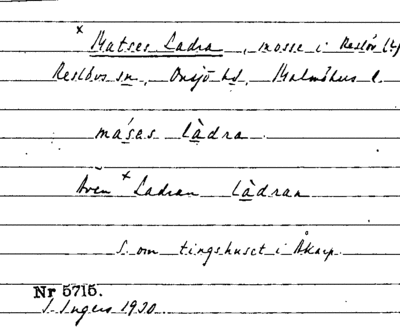 x Matses Ladra, mosse i Reslöv (4)
Reslövs sn, Onsjö hd, Malmöhus l.
má̱sas là̱dra.
Även x Ladran là̱dran
S. om tingshuset i Åkarp.
Nr 5715.
I. Ingers 1930.